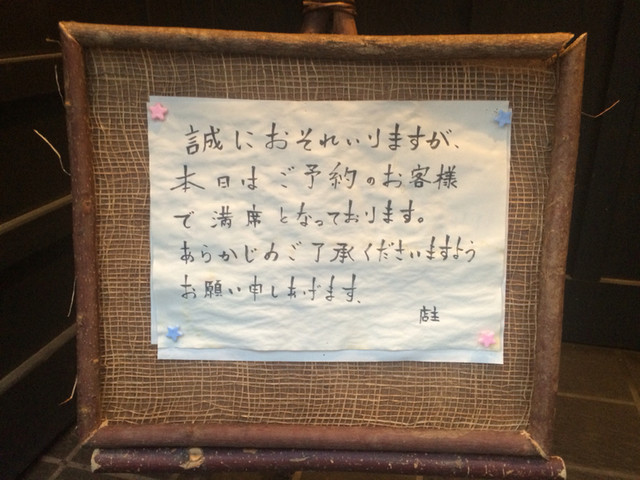 誠におそれいりますが、
本日はご予約のお客様
で満席となっております。
あらかじめご了承くださいますよう
お願い申しあげます。
店主